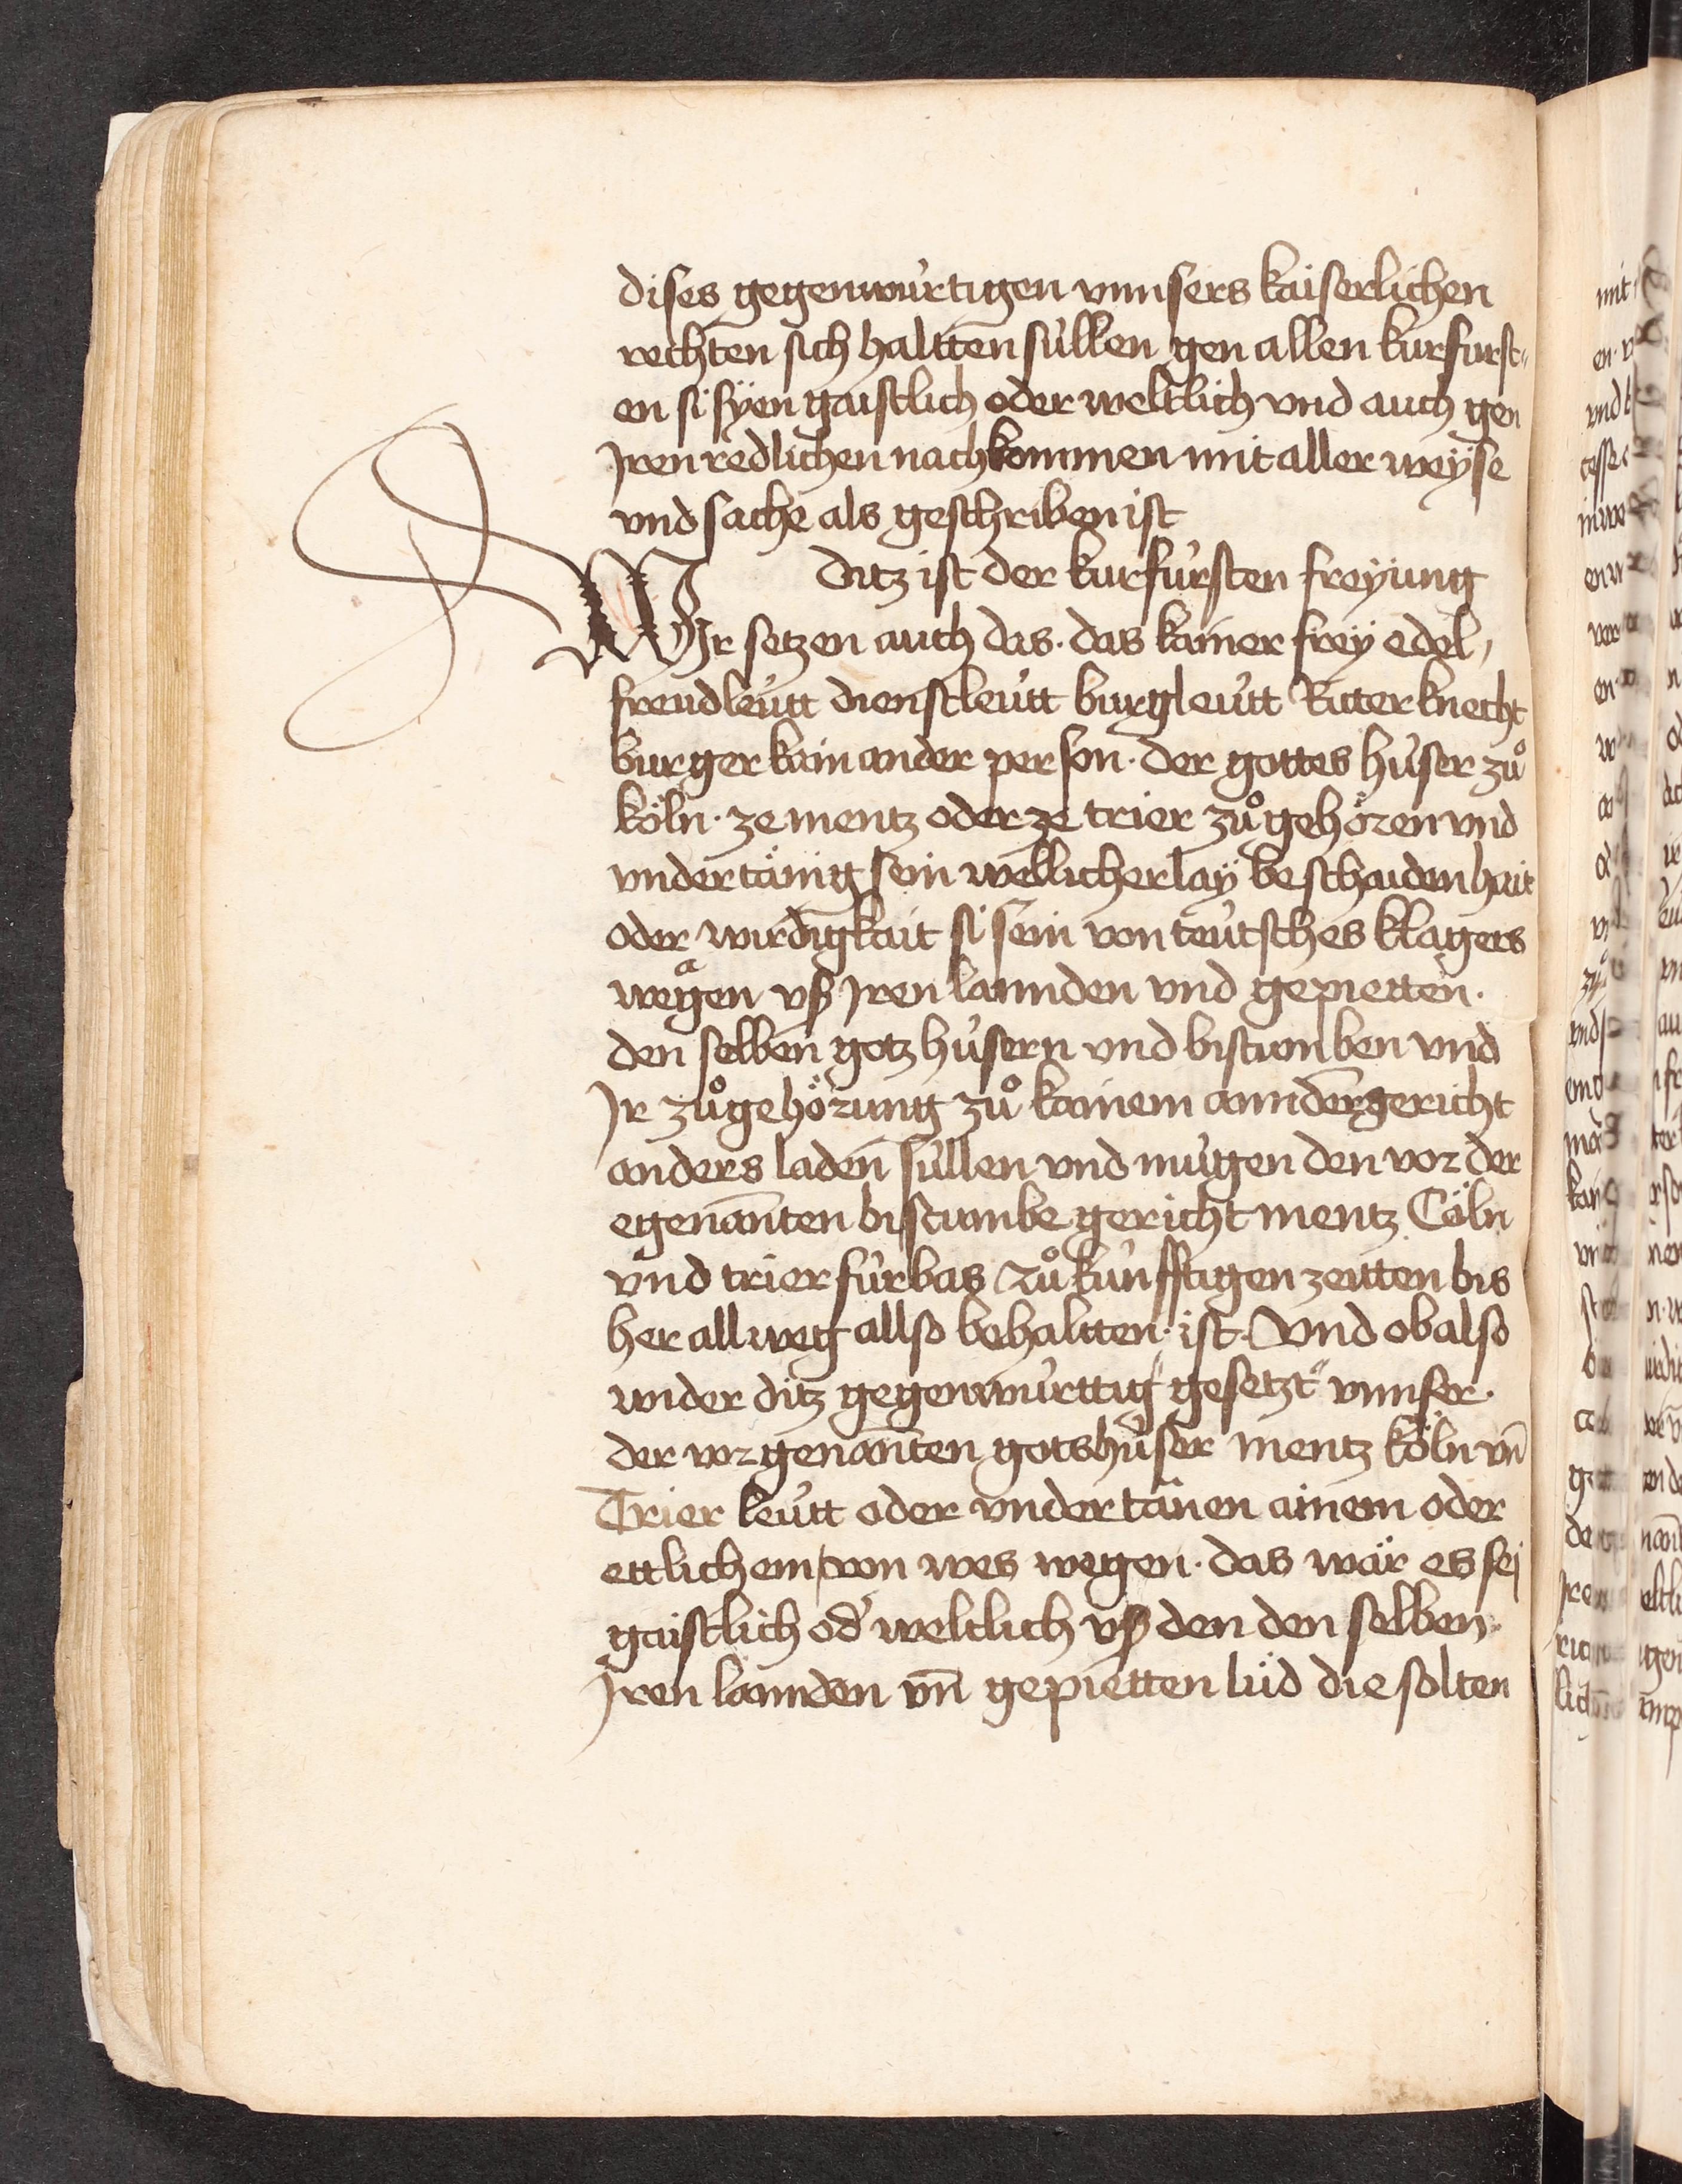 dises gegenwürtigen vnnsers kaiserlichen
rechten sich haltten süllen gen allen kurfürst„
en si sÿen gaistlich oder weltlich vnd auch gen
Jren redlichen nachkommen mit aller weÿse
vnd sache als geschriben ist
Ditz ist der kurfürsten freÿung
WJr setzen auch das · das kainer freÿ edel,
frendleütt dienstleütt burgleütt Ritter knecht
burger kain ander person · der gottes hüser zů
köln · ze mentz oder ze trier zů gehören vnd
vndertänig sein wellicherlaÿ beschaidenhait
oder wirdigkait si sein von teütsches klagers
wegen vß Jren lannden vnd gepietten ·
den selben gotz hüsern vnd bistumben vnd
Jr zůgehörung zů kainem annder gericht
anders laden süllen vnd mügen den vor der
egenanten bistumbe gericht mentz Cöln
vnd trier fürbas zů künfftigen zeitten bis
her allweg allso behaltten · ist · Vnd ob also
wider ditz gegenwürttig gesetzt vnnser ·
der vorgenanten gotshüser mentz köln vn̄
Trier leütt oder vndertänen ainem oder
ettlichem von wes wegen · das wär es sej
gaistlich od' weltlich vß den den selben
Jren lannden vn̄ gepietten lüd die solten